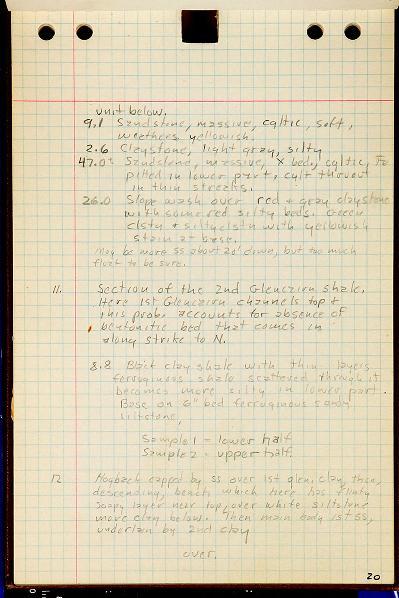 unit below.
9.1 Sandstone, massive, caltic, soft,
weathers yellowish.
2.6 Claystone, light gray, silty
47.0± Sandstone, massive, x bed, caltic, Fe
pitted in lower part, cglt thruout
in thin streaks.
26.0 Slope wash over red + gray claystone
with some red silty beds. Green
clstn + siltyclstn with yellowish
stain at base.
May be more ss about 20' down, but too much
float to be sure.
11. Section of the 2nd Glencairn shale.
Here 1st Glencairn channels top &
this prob. accounts for absence of
bentonitic bed that comes in
along strike to N.
8.8 Black clay shale with thin layers
ferruginous shale scattered through it
becomes more silty in lower part.
Base on 6" bed ferruginous sandy
siltstone,
Sample 1 = lower half
Sample 2 = upper half
12 Hogback capped by ss over 1st glen. clay, then,
descending, bench which here has flinty
soapy layer near top, over white siltstone
more clay below. Then main body 1st ss,
underlain by 2nd clay
over.
20